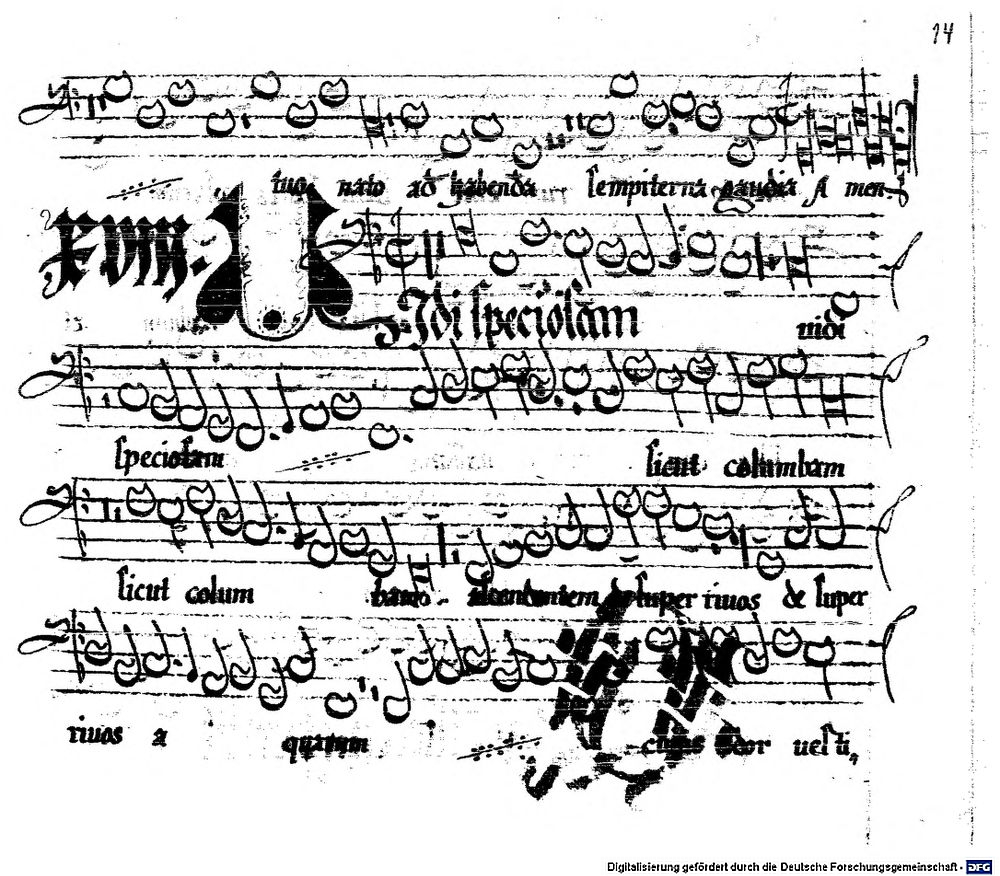 14
tuo nato ad habenda sempiterna gaudia A men
XVIII.
Vidi speciosam vidi
speciosam sicut columbam
sicut colum bam ascendentem de super rivos de super
rivos a quarum cuius odor vesti,
Digitalisierung gefördert durch die Deutsche Forschungsgemeinschaft - DFG